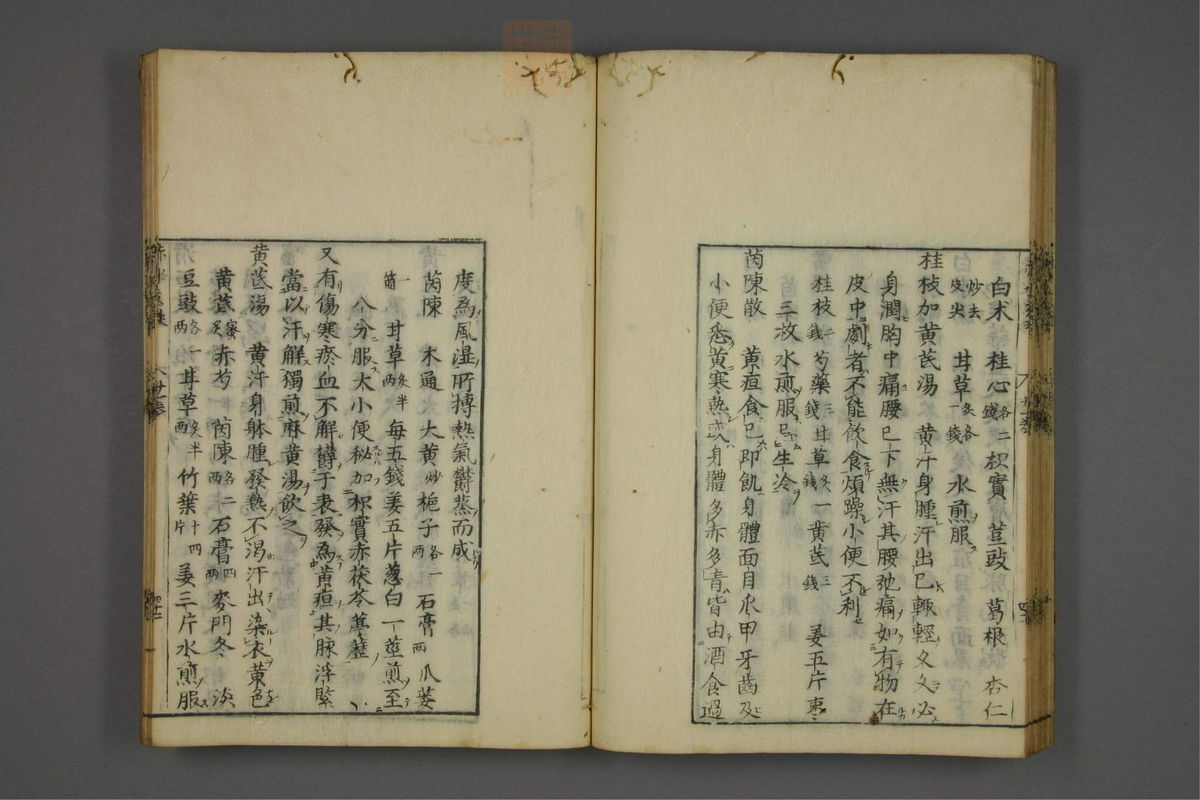 白朮 桂心各二錢 枳實 荳豉 葛根 杏仁
炒去皮尖 甘草炙各一錢 水煎服
桂枝加黃芪湯 黃汗身腫汗出已輒輕久久必
身瞤胸中痛腰已下無汗其腰弛痛如有物在
皮中劇者不能飲食煩躁小便不利
桂枝 芍藥三錢 甘草炙一錢 黃芪三錢 姜五片棗
三枚水煎服忌生冷
茵陳散 黃疸食已即飢身體面目爪甲牙齒及
小便悉黃寒熱或身體多赤多青皆由酒食過
度為風湿所搏熱氣欝蒸而成
茵陳 木通 大黃炒 梔子各一兩 石膏兩 瓜蔞
一箇 甘草炙半兩 每五錢姜五片葱白一莖煎至
八分服大小便秘加枳實赤茯苓葶藶
又有傷寒瘀血不解欝于表發為黃疸其脉浮緊
當以汗解獨煎麻黃湯飲之
黃芪湯 黃汗身躰腫發熱不渴汗出染衣黃色
黃芪蜜炙 赤芍 茵陳各二兩 石膏四兩 麥門冬 淡
豆豉各一兩 甘草炙半兩 竹葉十四片 姜三片水煎服